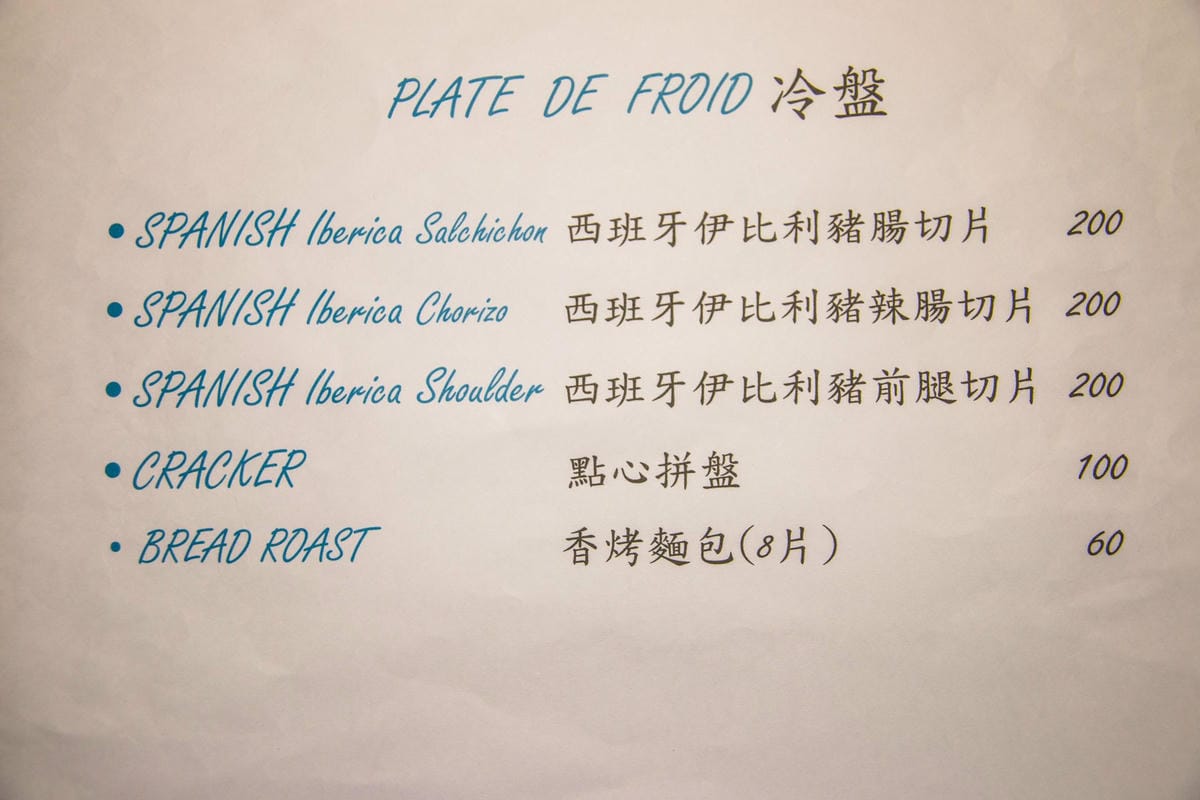 PLATE DE FROID 冷盤
• SPANISH Iberica Salchichon 西班牙伊比利豬腸切片 200
• SPANISH Iberica Chorizo 西班牙伊比利豬辣腸切片 200
• SPANISH Iberica Shoulder 西班牙伊比利豬前腿切片 200
• CRACKER 點心拼盤 100
• BREAD ROAST 香烤麵包(8片) 60